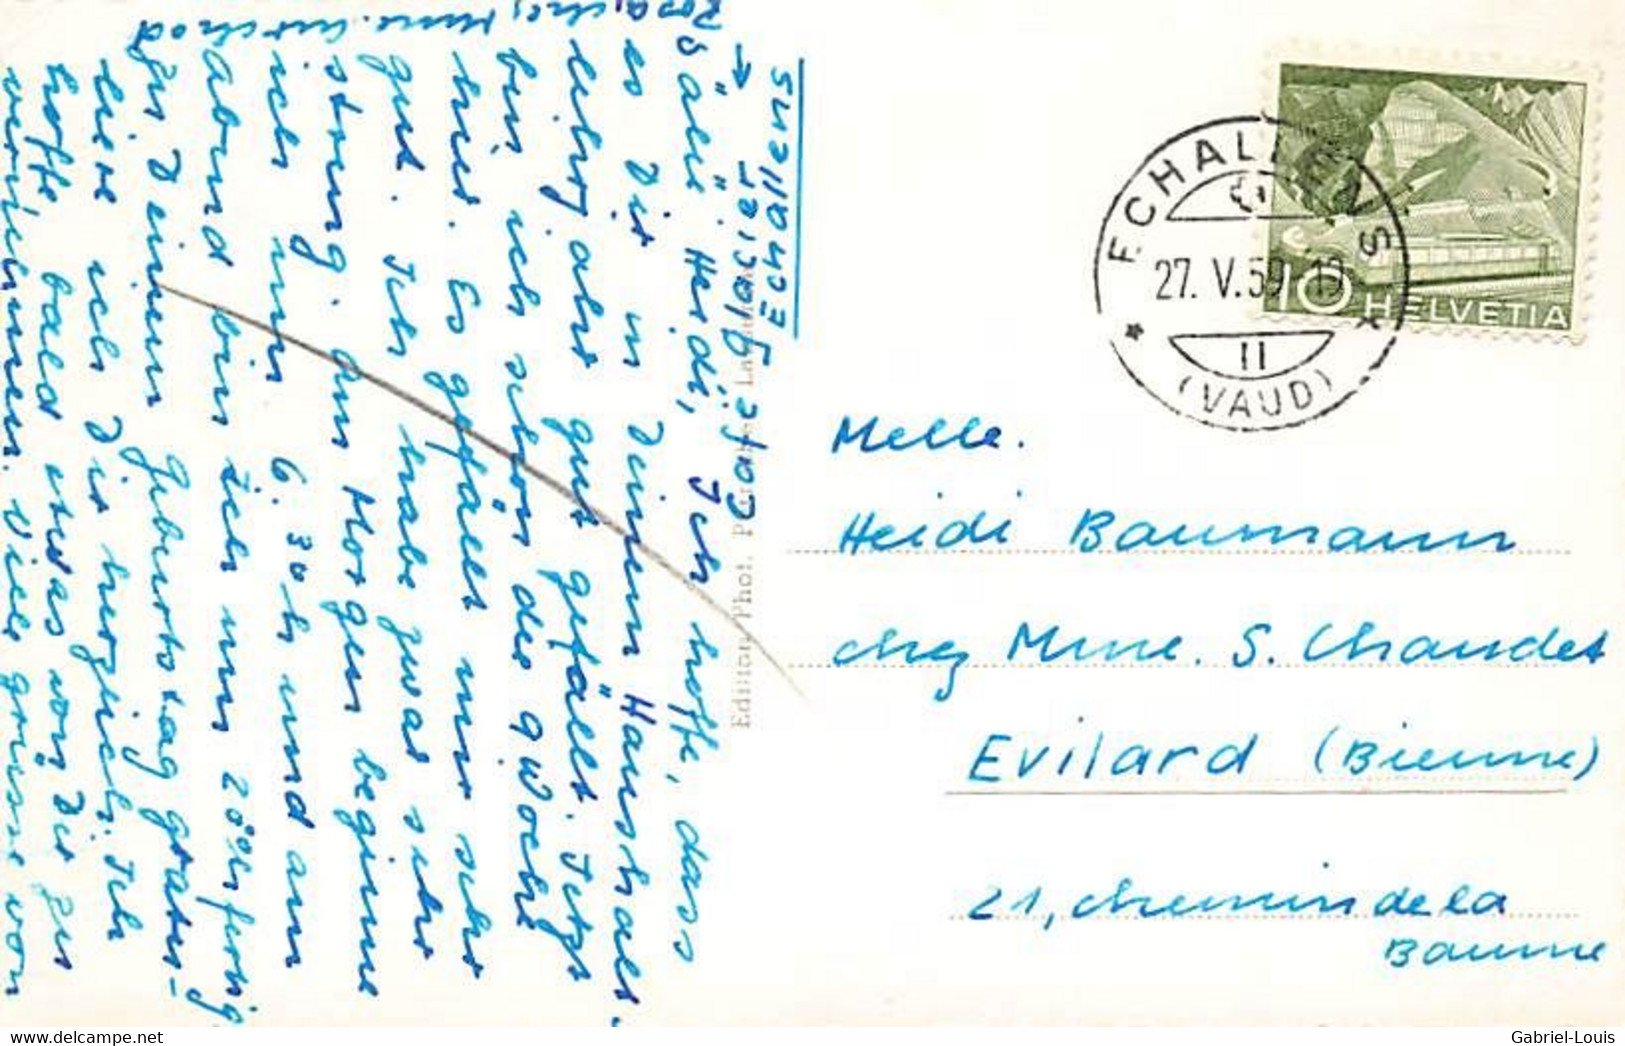 Sälü Heidi, Ich hoffe, dass
es Dir in Deinem Haushalt
sehr gut gefällt. Jetzt
bin ich schon die 9 Woche
hier. Es gefällt mir sehr
gut. Ich habe zwar sehr
streng. Am Morgen beginne
ich um 6.30 h und am
Abend bin ich um 20 00h fertig.
Zu Deinem Geburtstag gratu-
liere ich Dir herzlich. Ich
hoffe bald etwas von Dir zu
vernehmen. Viele grüsse von
Rosa, chez Mme.
Café
Echallens
Edition Phot.
ECHALLENS
27. V. 59 - 19
11
(VAUD)
10 HELVETIA
Melle.
Heidi Baumann
chez Mme. S. Chaudet
Evilard (Bienne)
21, chemin de la
Baume
delcampe.net
Gabriel-Louis